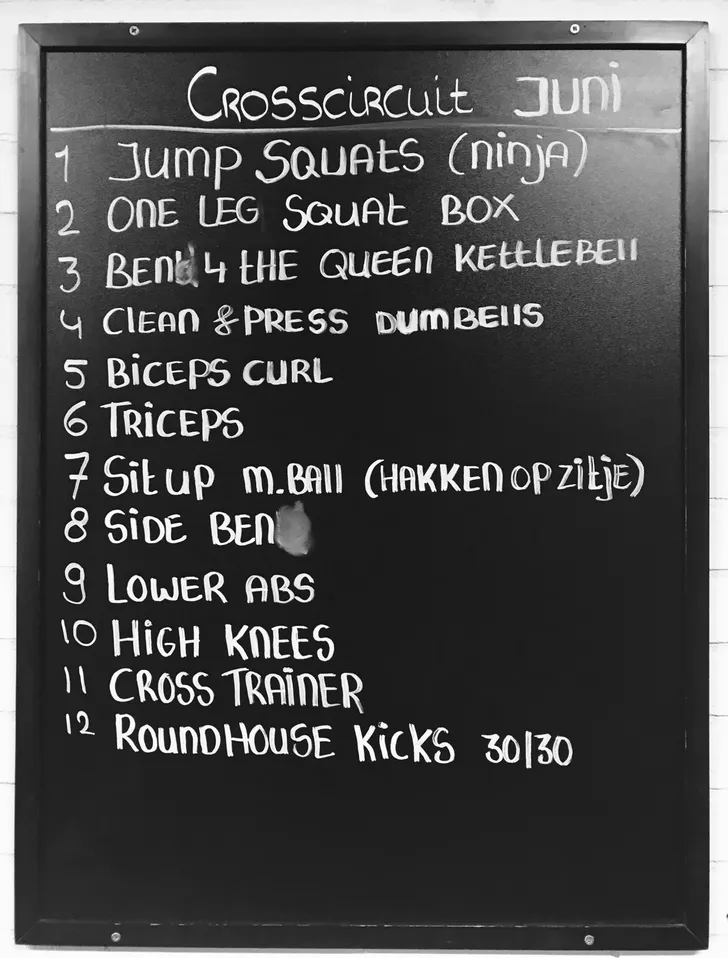 Crosscircuit Juni
1 Jump Squats (ninja)
2 One leg squat box
3 Bend 4 the Queen Kettlebell
4 Clean & Press Dumbells
5 Biceps curl
6 Triceps
7 Sit up m.Ball (Hakken op zitje)
8 Side Ben
9 Lower abs
10 High knees
11 Cross trainer
12 Roundhouse kicks 30/30